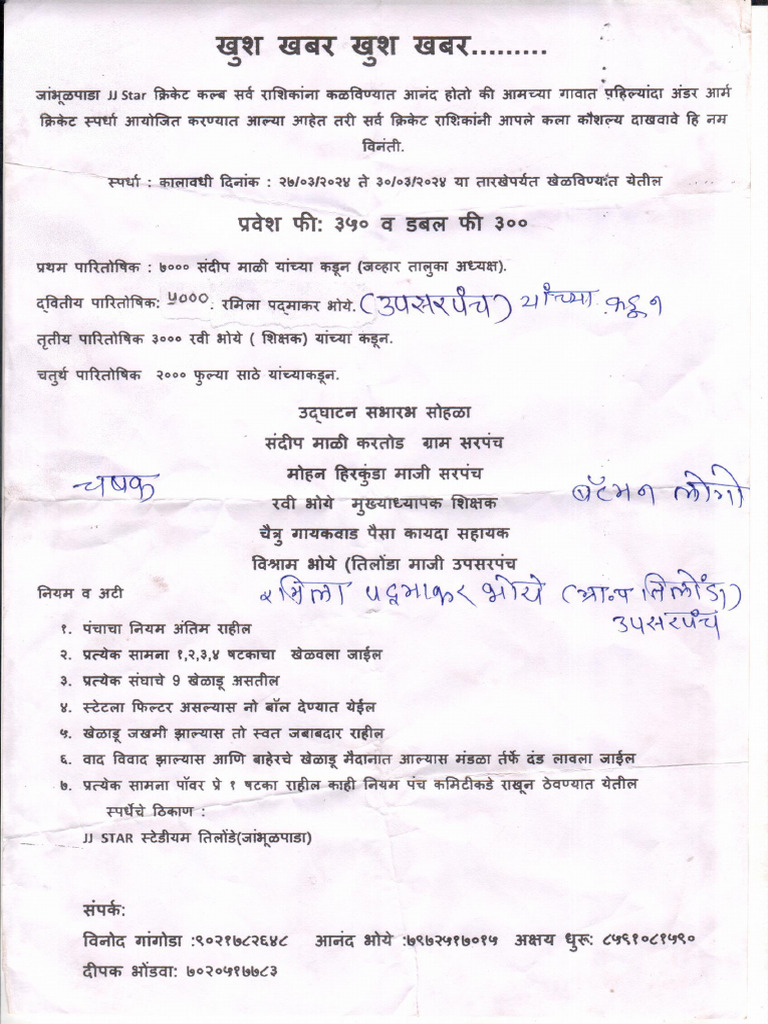 खुश खबर खुश खबर.........
जांभूळपाडा JJ Star क्रिकेट कल्ब सर्व राशिकांना कळविण्यात आनंद होतो की आमच्या गावात पहिल्यांदा अंडर आर्म
क्रिकेट स्पर्धा आयोजित करण्यात आल्या आहेत तरी सर्व क्रिकेट राशिकांनी आपले कला कौशल्य दाखवावे हि नम
विनंती.
स्पर्धा : कालावधी दिनांक : २७/०३/२०२४ ते ३०/०३/२०२४ या तारखेपर्यत खेळविण्यात येतील
प्रवेश फी: ३५० व डबल फी ३००
प्रथम पारितोषिक : ७००० संदीप माळी यांच्या कडून (जव्हार तालुका अध्यक्ष).
द्वितीय पारितोषिक: ५०००. रमिला पद्माकर भोये. (उपसरपंच) यांच्या कडून
तृतीय पारितोषिक ३००० रवी भोये ( शिक्षक) यांच्या कडून.
चतुर्थ पारितोषिक २००० फुल्या साठे यांच्याकडून.
उद्घाटन सभारभ सोहळा
संदीप माळी करतोड ग्राम सरपंच
मोहन हिरकुंडा माजी सरपंच
चषक बॅटमन लोगो
रवी भोये मुख्याध्यापक शिक्षक
चैत्रु गायकवाड पैसा कायदा सहायक
विश्राम भोये (तिलोंडा माजी उपसरपंच
नियम व अटी रमिला पद्माकर भोये (ग्रा.प तिलोंडा)
उपसरपंच
१. पंचाचा नियम अंतिम राहील
२. प्रत्येक सामना १,२,३,४ षटकाचा खेळवला जाईल
३. प्रत्येक संघाचे 9 खेळाडू असतील
४. स्टेटला फिल्टर असल्यास नो बॉल देण्यात येईल
५. खेळाडू जखमी झाल्यास तो स्वत जबाबदार राहील
६. वाद विवाद झाल्यास आणि बाहेरचे खेळाडू मैदानात आल्यास मंडळा र्तर्फे दंड लावला जाईल
७. प्रत्येक सामना पॉवर प्रे १ षटका राहील काही नियम पंच कमिटीकडे राखून ठेवण्यात येतील
स्पर्धेचे ठिकाण :
JJ STAR स्टेडीयम तिलोंडे(जांभूळपाडा)
संपर्क:
विनोद गांगोडा :९०२१७८२६४८ आनंद भोये :७९७२५१७०१५ अक्षय धुरू: ८५६१०८१५९०
दीपक भोंडवा: ७०२०५१७७८३